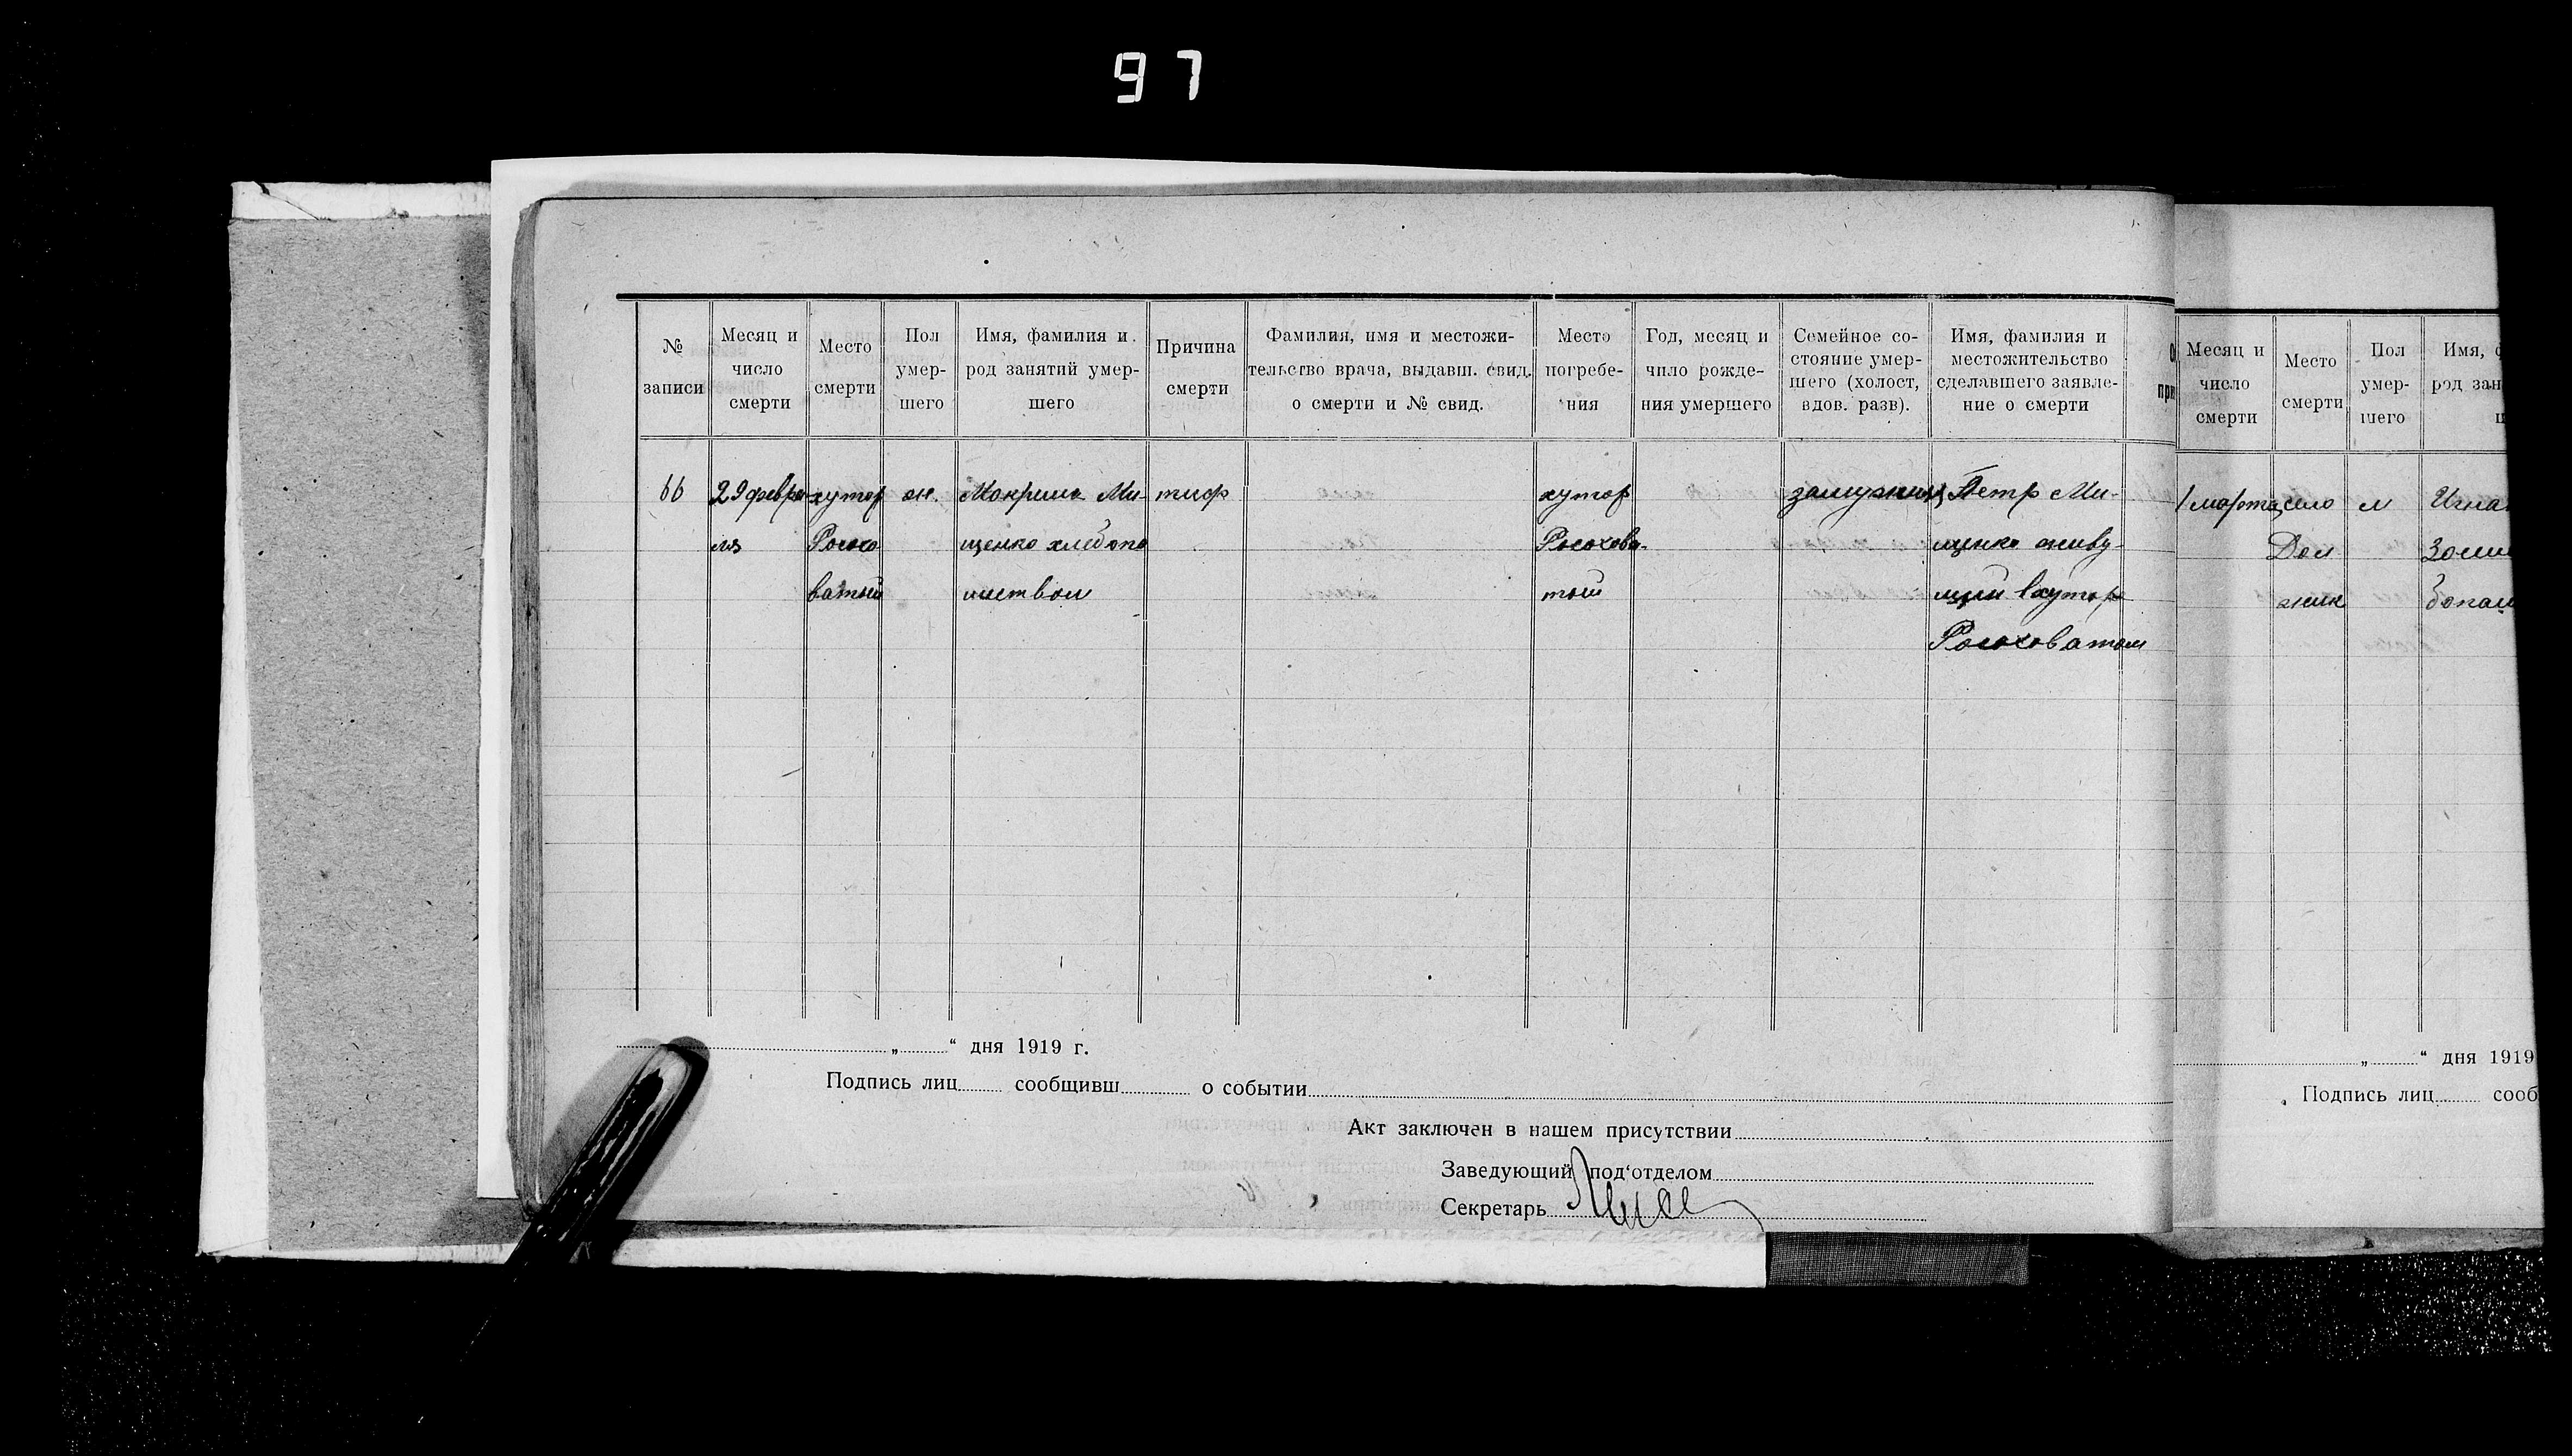 97
№ записи
Месяц и число смерти
Место смерти
Пол умер-шего
Имя, фамилия и род занятий умер-шего
Причина смерти
Фамилия, имя и местожи-тельство врача, выдавш. свид. о смерти и № свид.
Место погребе-ния
Год, месяц и чило рожде-ния умершего
Семейное со-стояние умер-шего (холост, вдов. разв).
Имя, фамилия и местожительство сделавшего заявле-ние о смерти
66
29 февра-
ля
хутор
Росохо
ватый
ж.
Мокрина Ми-
щенко хлебопа
шеством
тиф
хутор
Росохова-
тый
замужняя
Петр Ми-
щенко живу-
щий в хуторе
Росоховатом
„ “ дня 1919 г.
Подпись лиц сообщивш о событии
Акт заключен в нашем присутствии
Заведующий под‘отделом
Секретарь
Месяц и число смерти
Место смерти
Пол умер-шего
Имя,
род зан
1 марта
село
Дол
жик
м
Игна
бопаш
„ “ дня 1919
Подпись лиц сооб